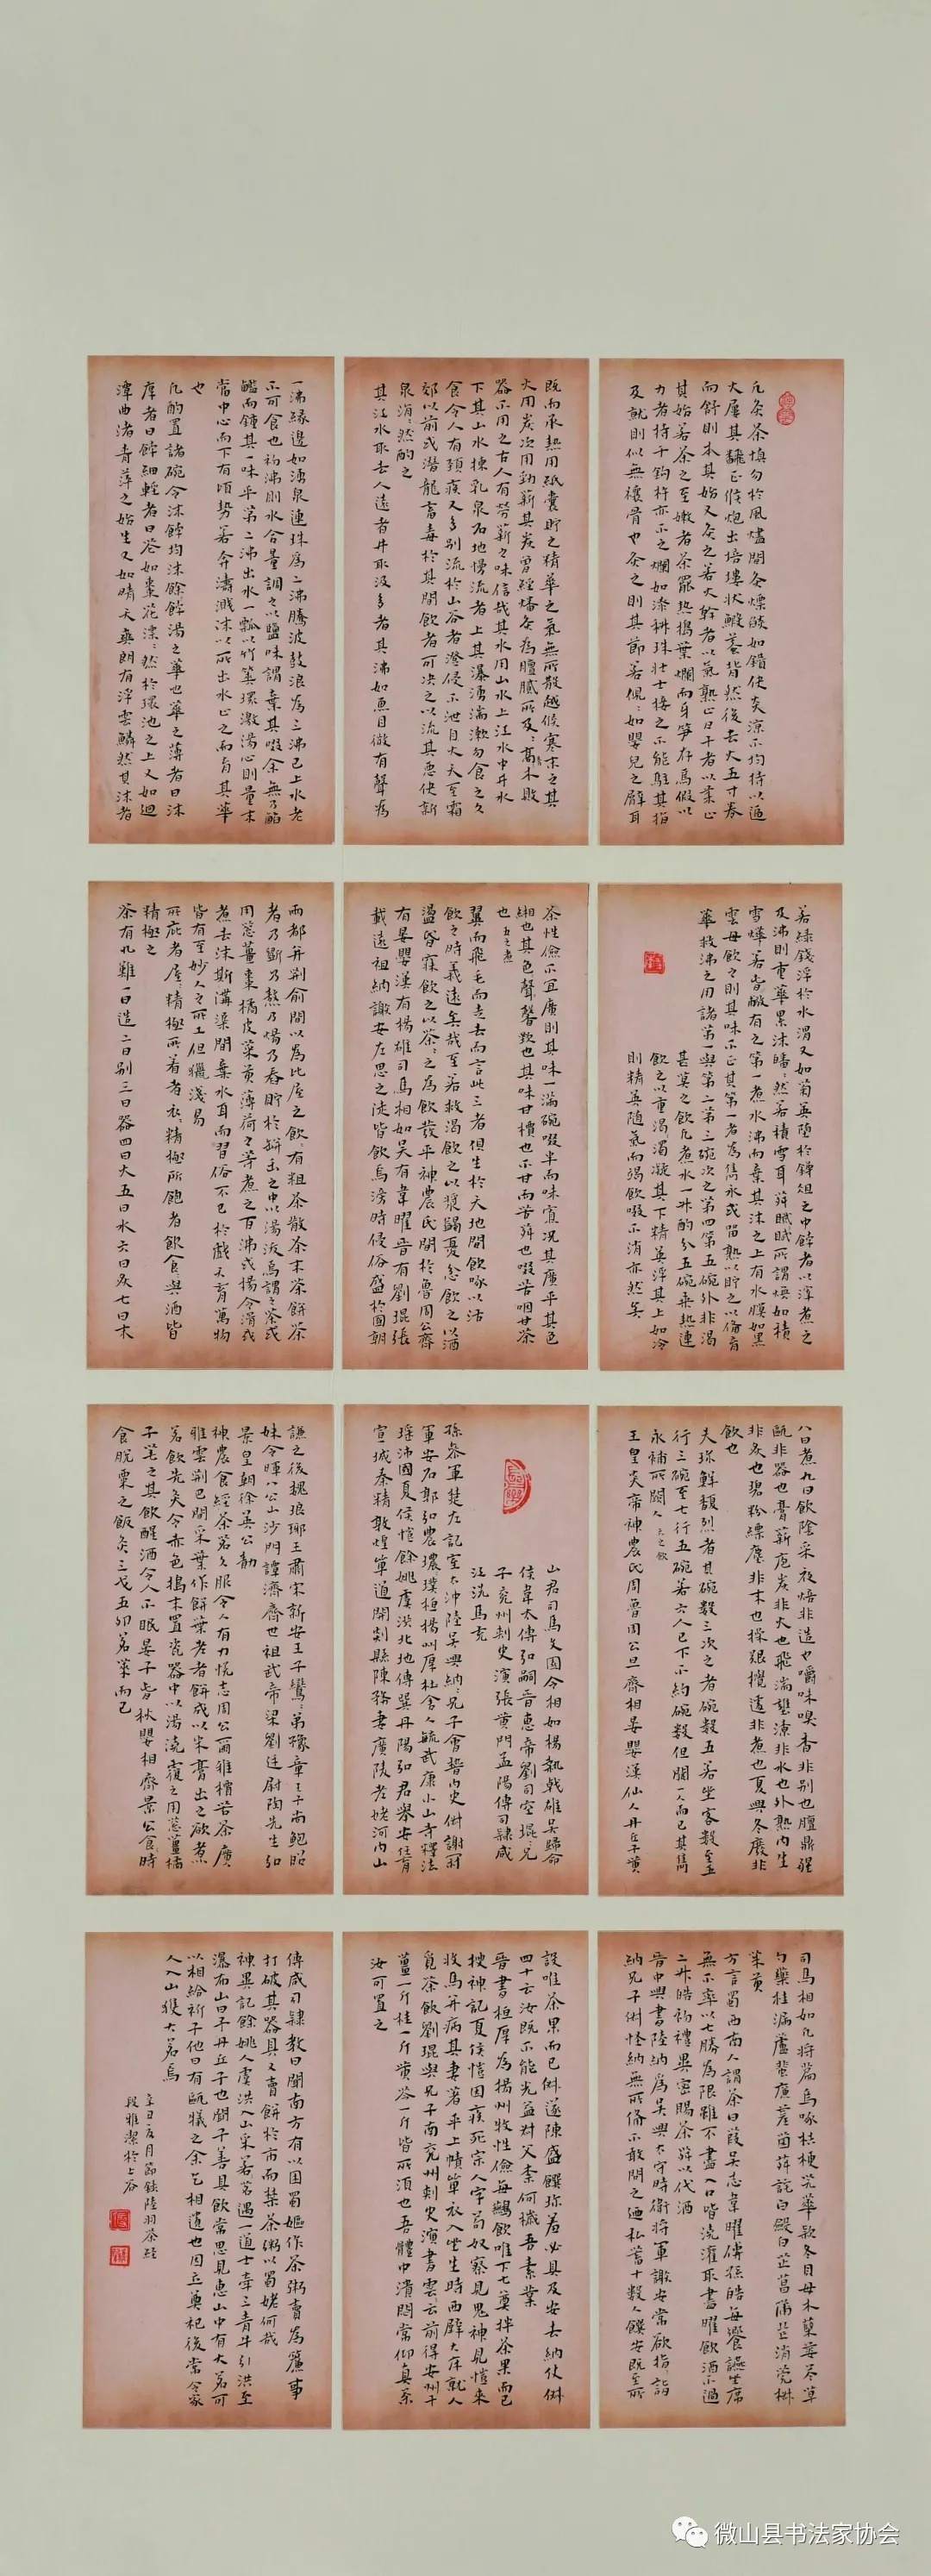 凡炙茶慎勿於風燼間炙熛焰如鑽使炎涼不均持以逼
火屢其翻正候炮出培塿狀蝦蟇背然後去火五寸卷
而舒則本其始又炙之若火幹者以氣熟止日干者以柔止
其始若茶之至嫩者茶罷熱搗葉爛而牙筍存焉假以
力者持千鈞杵亦不之爛如漆科珠壯士接之不能駐其指
及就則似無禳骨也炙之則其節若倪:如嬰兒之臂耳
既而承熱用紙囊貯之精華之氣無所散越候寒末之其
火用炭次用勁薪其炭曾經燔炙為膻膩所及:膏木敗
器不用之古人有勞薪之味信哉其水用山水上江水中井水
下其山水揀乳泉石地慢流者上其瀑湧湍漱勿食之久
食令人有頸疾又多別流於山谷者澄侵不泄自火天至霜
郊以前或潛龍畜毒於其間飲者可決之以流其惡使新
泉涓:然酌之
其江水取去人遠者井取汲多者其沸如魚目微有聲為
一沸緣邊如湧泉連珠為二沸騰波鼓浪為三沸已上水老
不可食也初沸則水合量調之以鹽味謂棄其啜余無乃
䀋而鍾其一味乎第二沸出水一瓢以竹筴環激湯心則量末
當中心而下有頃勢若奔濤濺沫以所出水止之而育其華
也
凡酌置諸碗令沫餑均沫餘餑湯之華也華之薄者曰沫
厚者曰餑細輕者曰花如棗花漂:然於環池之上又如迴
潭曲渚青萍之始生又如晴天爽朗有浮雲鱗然其沫者
若綠錢浮於水渭又如菊英墮於鐏俎之中餑者以滓煮之
及沸則重華累沫皤:然若積雪耳荈賦所謂煥如積
雪燁若春敷有之第一煮水沸而棄其沫之上有水膜如黑
雲母飲之則其味不正其第一者為雋永或留熟以貯之以備育
華救沸之用諸第一與第二第三碗次之第四第五碗外非渴
甚莫之飲凡煮水一升酌分五碗乘熱連
飲之以重濁凝其下精英浮其上如冷
則精英隨氣而竭飲啜不消亦然矣
茶性儉不宜廣則其味一滿碗啜半而味寡況其廣乎其色
緗也其色聲馨欻也其味甘檟也不甘而苦荈也啜苦咽甘茶
也 五之煮
翼而飛毛而走去而言此三者俱生於天地間飲啄以活
飲之時義遠矣哉至若救渴飲之以漿蠲憂忿飲之以酒
盪昏寐飲之以茶:之為飲發乎神農氏間於魯周公齊
有晏嬰漢有揚雄司馬相如吳有韋曜晉有劉琨張
載遠祖納謝安左思之徒皆飲焉滂時侵俗盛於國朝
兩都并荊俞間以為比屋之飲:有粗茶散茶末茶餅茶
者乃斫乃熬乃煬乃舂貯於缾缶之中以湯沃焉謂之茶或
用蔥薑棗橘皮茱萸薄荷之等煮之百沸或揚令滑或
煮去沫斯溝渠間棄水耳而習俗不已於戲天育萬物
皆有至妙人之所工但獵淺易
所庇者屋:精極所著者衣:精極所飽者飲食:與酒皆
精極之
茶有九難一曰造二曰別三曰器四曰火五曰水六曰炙七曰末
八曰煮九曰飲陰采夜焙非造也嚼味嗅香非別也膻鼎腥
甌非器也膏薪庖炭非火也飛湍壅潦非水也外熟內生
非炙也碧粉縹塵非末也操艱攪遽非煮也夏興冬廢非
飲也
夫珍鮮馥烈者其碗數三次之者碗數五若坐客數至五
行三碗至七行五碗若六人已下不約碗數但闕一人而已其雋
永補所闕人 六之飲
王皇炎帝神農氏周魯周公旦齊相晏嬰漢仙人丹丘子黃
山君司馬文園令相如揚執戟雄吳歸命
侯韋太傅弘嗣晉惠帝劉司空琨:兄
子兗州刺史演張黃門孟陽傅司隸咸
江洗馬充
孫參軍楚左記室太沖陸吳興納:兄子會嵇內史俶謝冠
軍安石郭弘農璞桓揚州厚杜舍人毓武康小山寺釋法
瑤沛國夏侯愷餘姚虞洪北地傅巽丹陽弘君舉安任育
宣城秦精敦煌單道開剡縣陳務妻廣陵老姥河內山
謙之後魏琅琊王肅宋新安王子鸞:弟豫章王子尚鮑昭
妹令暉八公山沙門譚濟齊世祖武帝梁劉廷尉陶先生弘
景皇朝徐英公勣
神農食經茶茗久服令人有力悅志周公爾雅檟苦茶廣
雅雲荊巴間采葉作餅葉老者餅成以米膏出之欲煮
茗飲先炙令赤色搗末置瓷器中以湯澆覆之用蔥薑橘
子芼之其飲醒酒令人不眠晏子春秋嬰相齊景公食時
食脫粟之飯炙三弋五卵茗菜而已
司馬相如凡將篇烏啄桔梗芫華款冬貝母木蘗蔞芩草
勺藥桂漏蘆蜚廉雚菌荈詫白斂白芷菖蒲芒消莞椒
茱萸
方言蜀西南人謂茶曰葭吳志韋曜傳孫皓每饗讌坐席
無不率以七勝為限雖不盡入口皆澆灌取盡曜飲酒不過
二升皓初禮異密賜茶荈以代酒
晉中興書陸納為吳興太守時衛將軍謝安常欲指:詣
納兄子俶怪納無所備不敢問之迺私蓄十數人饌安既至所
設唯茶果而已俶遂陳盛饌珍羞必具及安去納使俶
四十云汝既不能光益對父柰何穢吾素業
晉書桓厚為揚州牧性儉每讌飲唯下七奠拌茶果而已
搜神記夏侯愷因疾死宗人字苟奴察見鬼神見愷來
收馬并病其妻著平上幘單衣入坐生時西壁大床就人
覓茶飲劉琨與兄子南兗州刺史演書雲云前得安州干
薑一斤桂一斤黃芩一斤皆所須也吾體中潰悶常仰真茶
汝可置之
傅咸司隸教曰聞南方有以困蜀嫗作茶粥賣為簾事
打破其器具又賣餅於市而禁茶粥以蜀姥何哉
神異記餘姚人虞洪入山采茗遇一道士牽三青牛引洪至
瀑布山曰予丹丘子也聞子善具飲常思見惠山中有大茗可
以相給祈子他日有甌犧之余乞相遺也因立奠祀後常令家
人入山獲大茗焉
辛丑亥月節錄陸羽茶經
段雅潔於上谷
微山县书法家协会